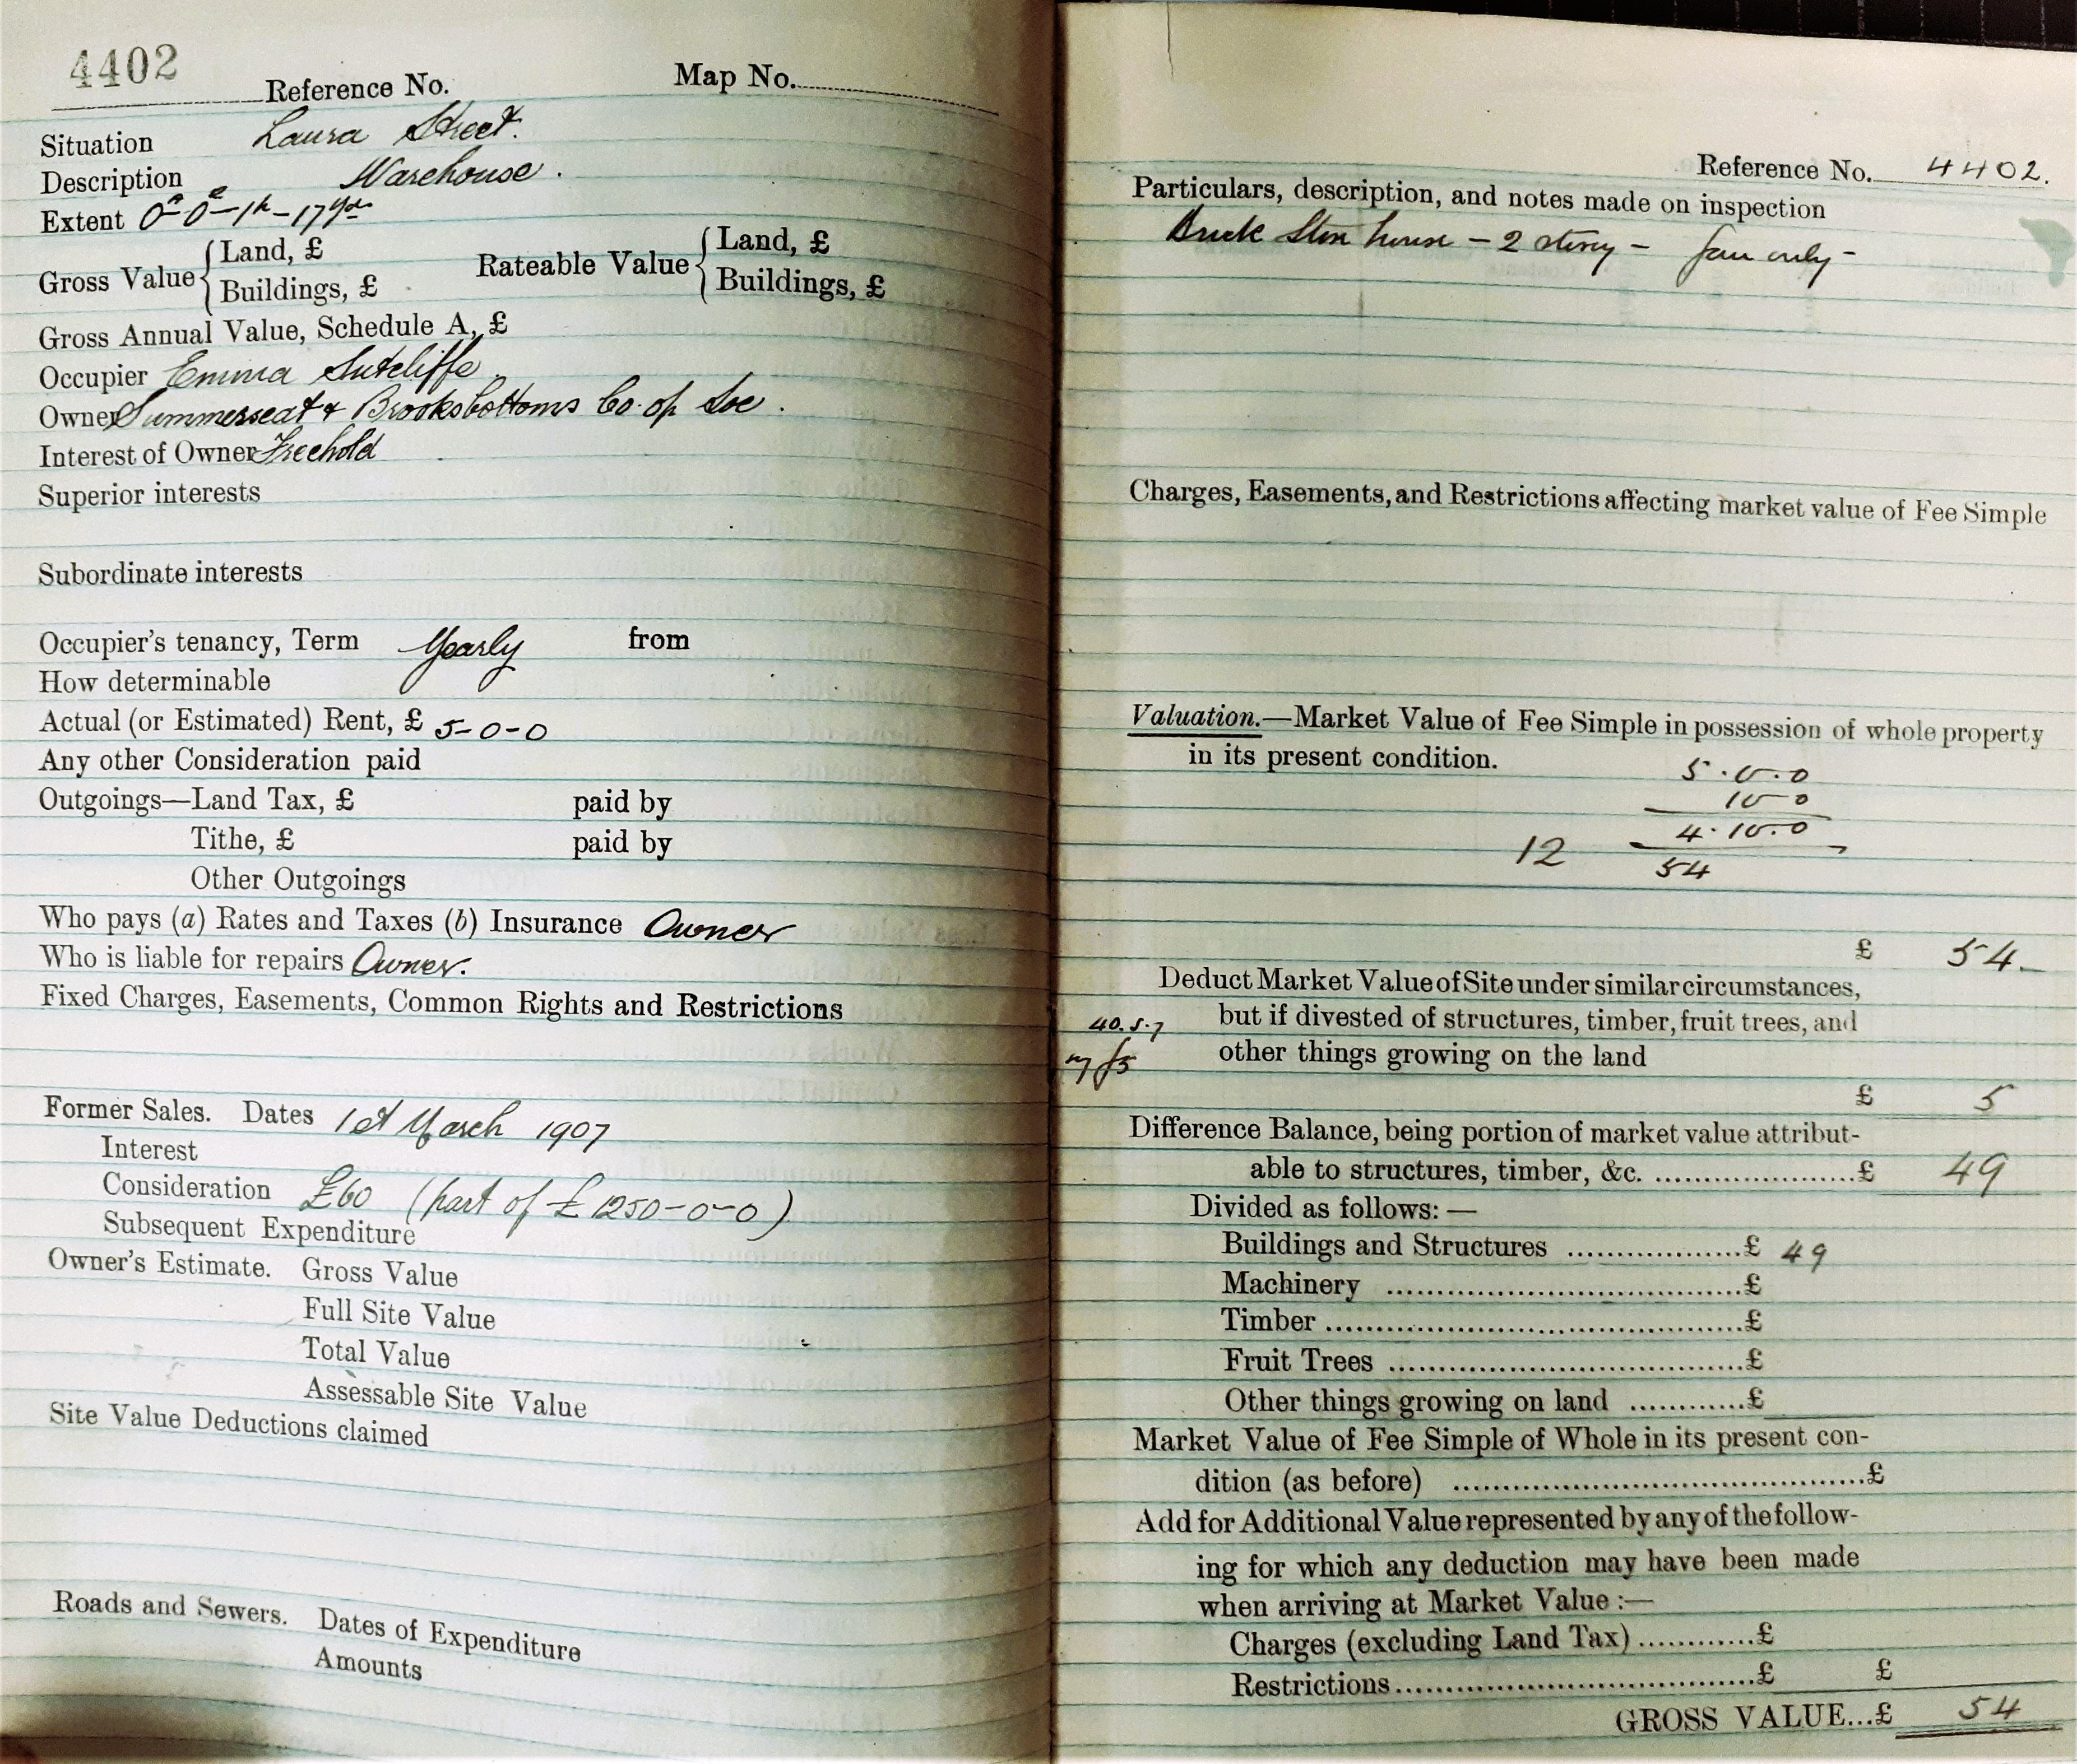 4402
Reference No. Map No.
Situation Laura Street.
Description Warehouse.
Extent 0a-0r-1p-17yds
Gross Value { Land, £ Rateable Value { Land, £
Buildings, £ Buildings, £
Gross Annual Value, Schedule A, £
Occupier Emma Sutcliffe
Owner Summerseat & Brooksbottoms Co. op Soc.
Interest of Owner Freehold
Superior interests
Subordinate interests
Occupier's tenancy, Term Yearly from
How determinable
Actual (or Estimated) Rent, £ 5-0-0
Any other Consideration paid
Outgoings—Land Tax, £ paid by
Tithe, £ paid by
Other Outgoings
Who pays (a) Rates and Taxes (b) Insurance Owner
Who is liable for repairs Owner.
Fixed Charges, Easements, Common Rights and Restrictions
Former Sales. Dates 1st March 1907
Interest
Consideration £60 (part of £1250-0-0)
Subsequent Expenditure
Owner's Estimate. Gross Value
Full Site Value
Total Value
Assessable Site Value
Site Value Deductions claimed
Roads and Sewers. Dates of Expenditure
Amounts
Reference No. 4402.
Particulars, description, and notes made on inspection
Brick Store house - 2 storey - fair only -
Charges, Easements, and Restrictions affecting market value of Fee Simple
Valuation.—Market Value of Fee Simple in possession of whole property
in its present condition.
5.0.0
10-0
4.10.0
12 54
£ 54-
Deduct Market Value of Site under similar circumstances,
but if divested of structures, timber, fruit trees, and
other things growing on the land
£ 5
Difference Balance, being portion of market value attribut-
able to structures, timber, &c. ....................£ 49
Divided as follows: —
Buildings and Structures .................£ 49
Machinery ...................................£
Timber .......................................£
Fruit Trees ..................................£
Other things growing on land ............£
Market Value of Fee Simple of Whole in its present con-
dition (as before) .......................................£
Add for Additional Value represented by any of the follow-
ing for which any deduction may have been made
when arriving at Market Value :—
Charges (excluding Land Tax) ............£
Restrictions .................................£ £
GROSS VALUE...£ 54